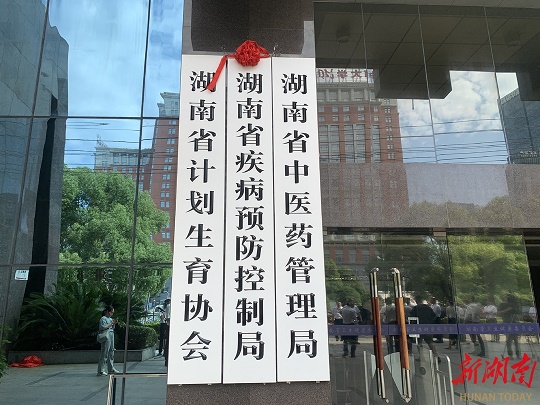 湖南省中医药管理局
湖南省疾病预防控制局
湖南省计划生育协会
新湖南
HUNAN TODAY